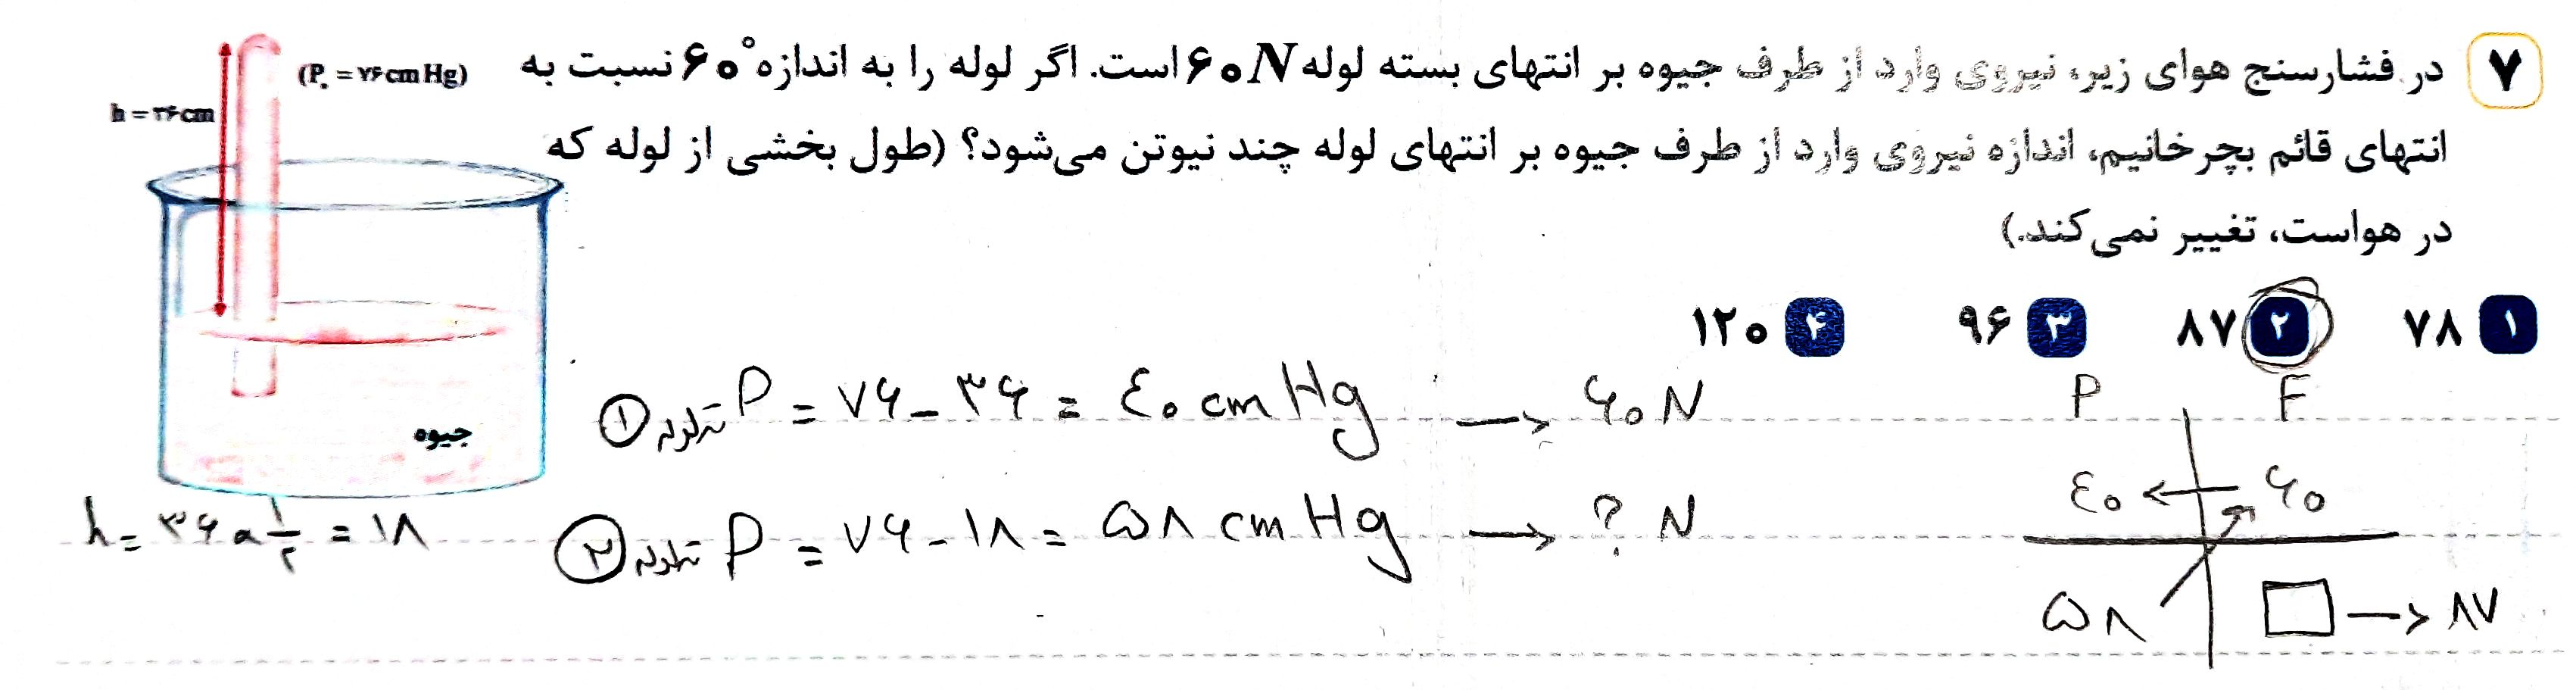 ۷ در فشارسنج هوای زیر، نیروی وارد از طرف جیوه بر انتهای بسته لوله ۶۰N است. اگر لوله را به اندازه ۶۰° نسبت به
انتهای قائم بچرخانیم، اندازه نیروی وارد از طرف جیوه بر انتهای لوله چند نیوتن می‌شود؟ (طول بخشی از لوله که
در هواست، تغییر نمی‌کند.)
(P۰ = ۷۶ cm Hg)
h = ۳۶ cm
جیوه
۱ ۷۸ ۲ ۸۷ ۳ ۹۶ ۴ ۱۲۰
① ته لوله P = ۷۶ - ۳۶ = ۴۰ cm Hg → ۶۰ N
② ته لوله P = ۷۶ - ۱۸ = ۵۸ cm Hg → ? N
h = ۳۶ × ۱/۲ = ۱۸
P F
۴۰ ← ۶۰
۵۸ □ → ۸۷